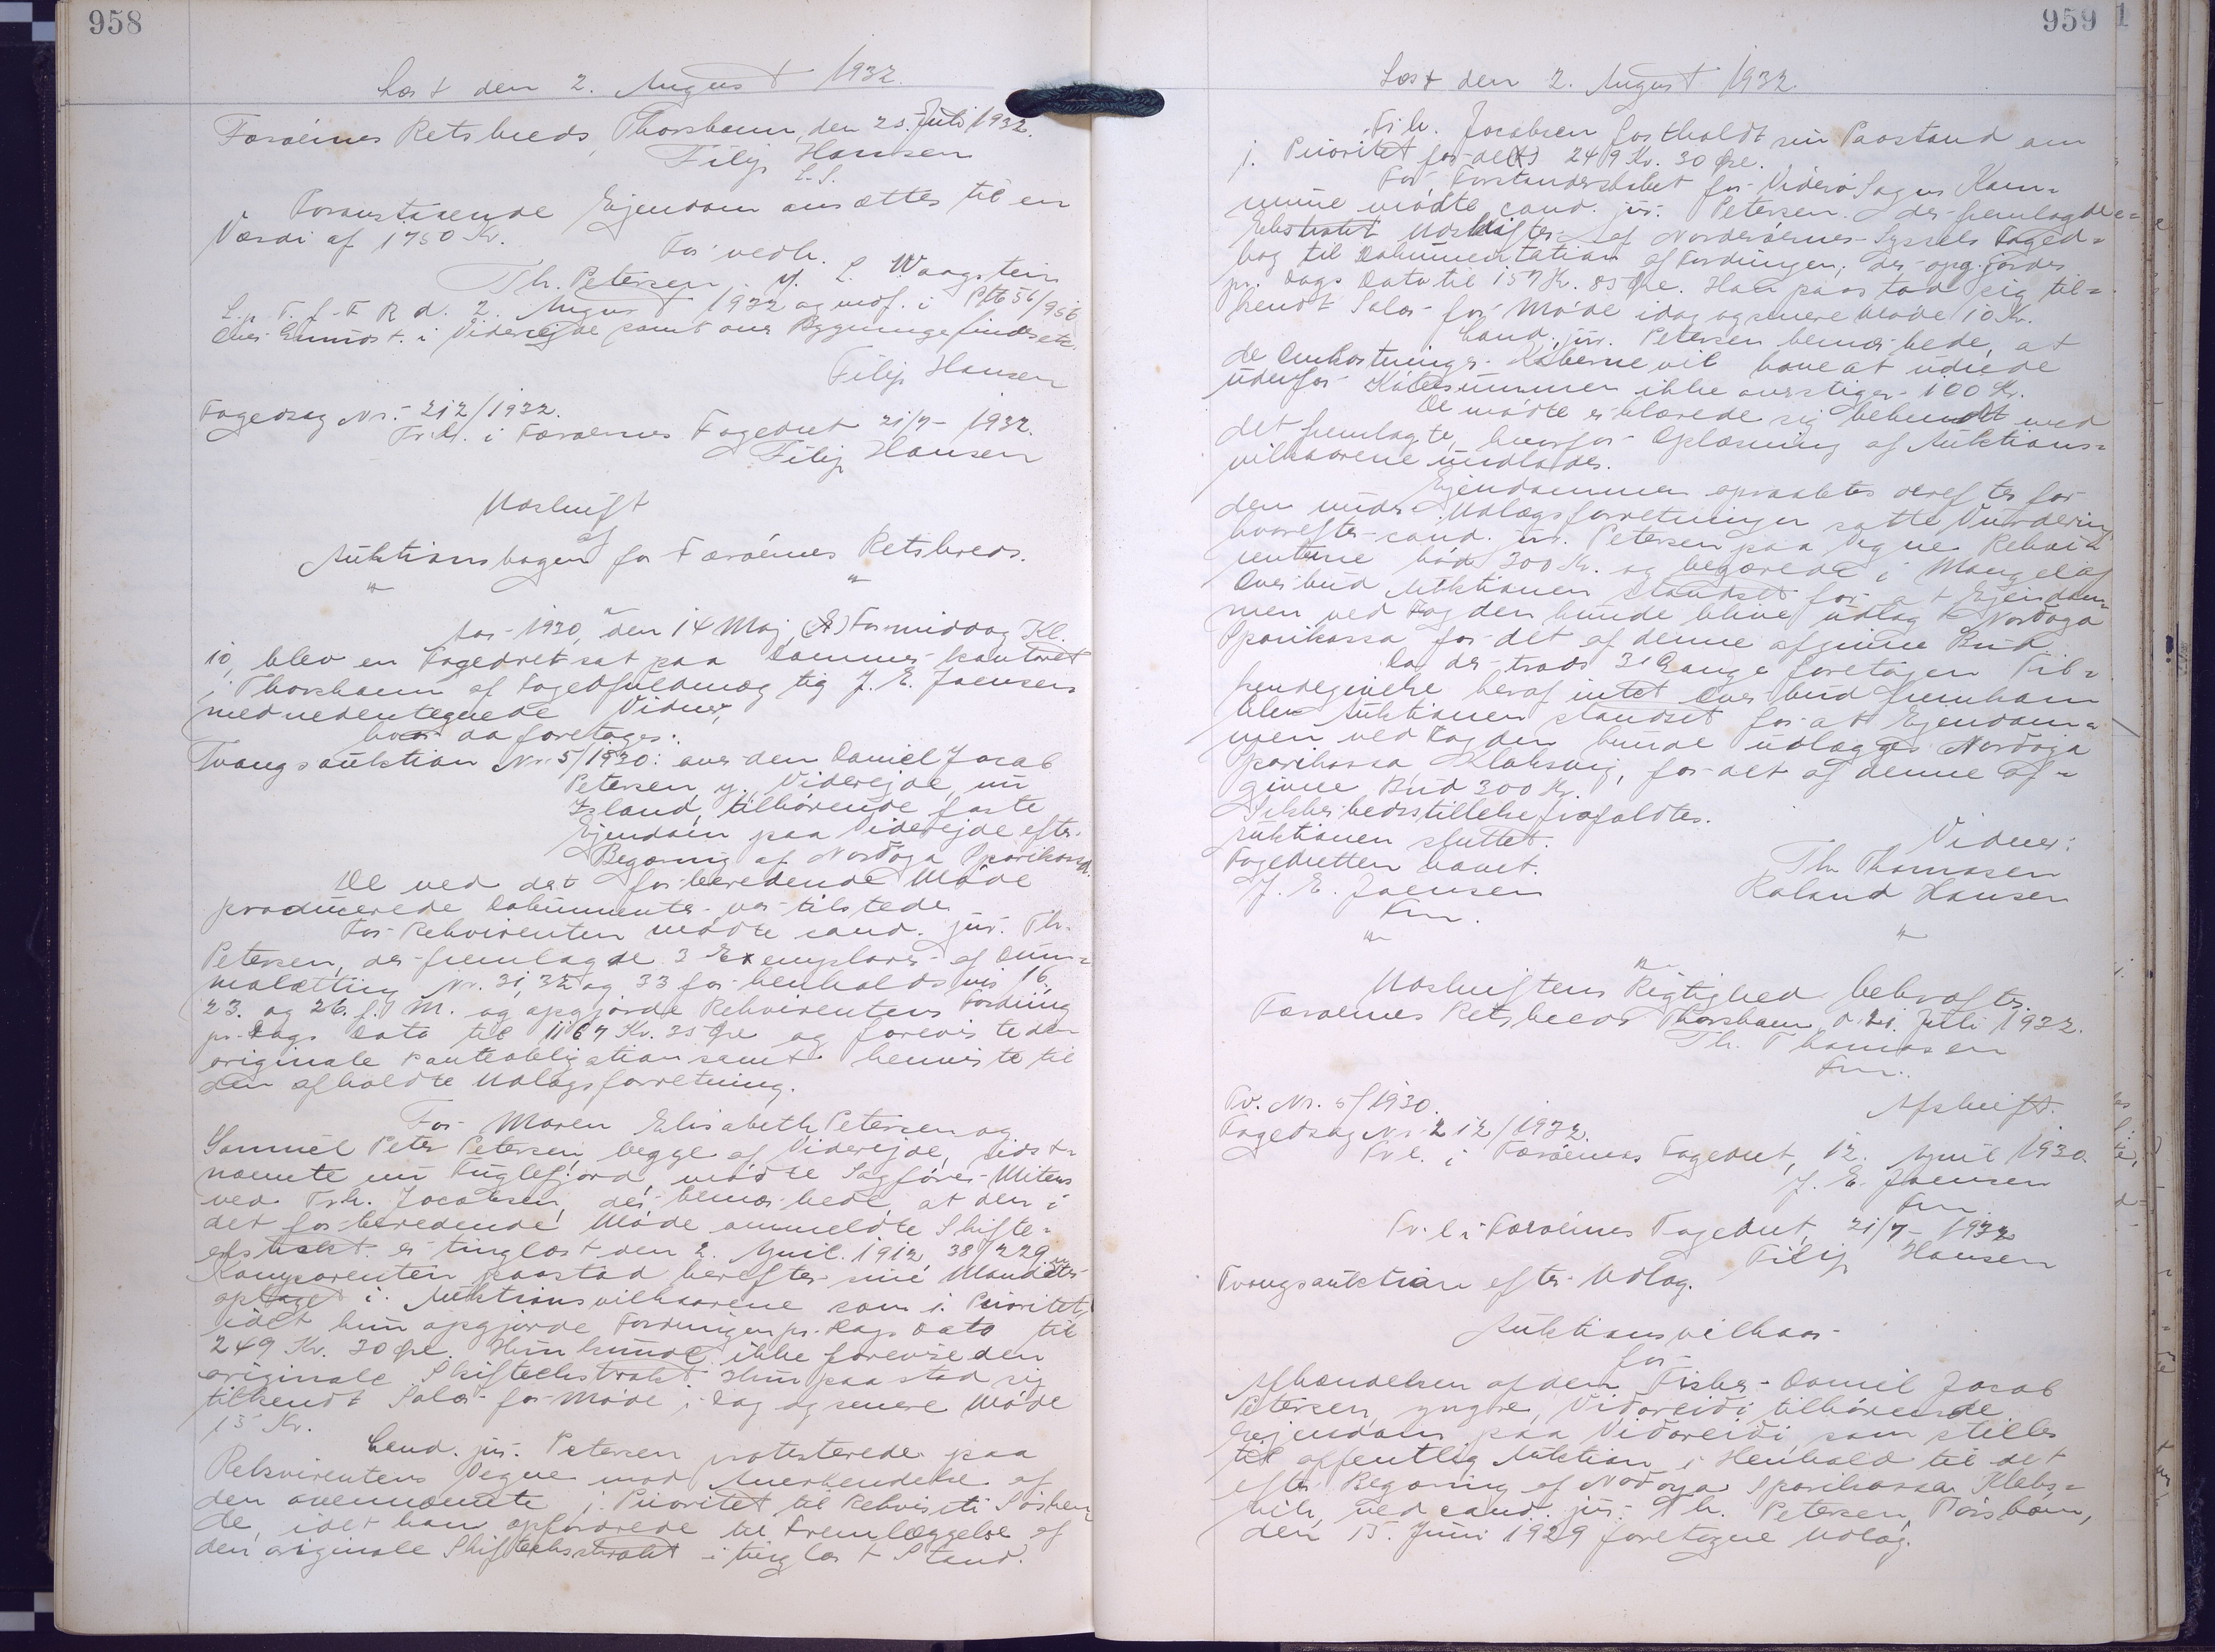 958
Læst den 2. August 1932.
Færøernes Retskreds, Thorshavn, den 25. Juli 1932.
Filip Hansen
L.S.
Foranstaaende Ejendom ansættes til en
Værdi af 1750 Kr.
For vedk.
Th. Petersen. M. L. Waagstein
L. p. T. f. F R d. 2. August 1932 og indf. i Ptb 56/956
Over Grundst. i Viderejde samt over Bygninge findes etc.
Filip Hansen
Fogedsag Nr. 212/1932.
Fr.l. i Færøernes Fogedret 21/7 - 1932.
Filip Hansen
Udskrift
af
Auktionsbogen for Færøernes Retskreds.
" "
"
Aar 1930, den 14 Maj, (E) Formiddag Kl.
10, blev en Fogedret sat paa Dommerkontoret
i Thorshavn af Fogedfuldmægtig J. E. Joensen
med nedentegnede Vidner,
hvor da foretoges:
Tvangsauktion Nr. 5/1930: over den Daniel Jacob
Petersen, y., Viderejde, nu
Island, tilhørende faste
Ejendom paa Viderejde efter
Begæring af Nordoya Sparikassa.
De ved det forberedende Møde
producerede Dokumenter var tilstede.
For Rekvirenten mødte cand. jur. Th.
Petersen, der fremlagde 3 Exemplarer af Dim-
malætting Nr. 31, 32 og 33 for henholdsvis 16,
23. og 26. f. M. og opgjorde Rekvirentens Fordring
pr. Dags Dato til 1167 Kr. 35 Øre og foreviste den
originale Panteobligation samt henviste til
den afholdte Udlægsforretning.
For Maren Elisabeth Petersen og
Samuel Peter Petersen, begge af Viderejde, sidst-
nævnte nu Fuglefjord, mødte Sagfører Mitens
ved Frk. Jacobsen, der bemærkede, at den i
det forberedende Møde anmeldte Skifte-
ekstrakt er tinglæst den 2. April 1912, 38/229.
Komparenten paastod herefter sine Mandater
optaget i Auktionsvilkaarene som 1. Prioritet,
idet hun opgjorde Fordringen pr. Dags Dato til
249 Kr. 30 Øre. Hun kunde ikke forevise den
originale Skifteekstrakt. Hun paastod sig
tilkendt Salær for Møde i Dag og senere Møde
15 Kr.
Cand. jur. Petersen protesterede paa
Rekvirentens Vegne mod Anerkendelse af
den ovennævnte 1. Prioritet til Rekvisiti Søsken
de, idet han opfordrede til Fremlæggelse af
den originale Skifteekstrakt i tinglæst Stand.
959
Læst den 2. August 1932.
Frk. Jacobsen fastholdt sin Paastand om
1. Prioritet for de(t) 249 Kr. 30 Øre.
For Forstanderskabet for Viderø Sogns Kom-
mune mødte cand. jur. Petersen. der fremlagde
Ekstrakt Udskrifter af Norderøernes Syssels Foged-
bog til Dokumentation af Fordringen, der opg. Fordes
pr. Dags Dato til 157 Kr. 85 Øre. Han paastod sig til-
kendt Salær for Møde idag og senere Møde 10 Kr.
Cand. jur. Petersen bemærkede, at
de Omkostninger Køberne vil have at udrede
udenfor Købesummen ikke overstiger 100 Kr.
De mødte erklærede sig bekendt med
det fremlagte, hvorfor Oplæsning af Auktions-
vilkaarene undlodes.
Ejendommen opraabtes derefter for
den under Udlægsforretningen satte Vurdering
hvorefter cand. jur. Petersen paa Vegne Rekvi-
renterne bød 300 Kr. og begærede i Mangel af
Overbud Auktionen standset for at Ejendom-
men ved Fogden kunde blive udlagt Nordoya
Sparikassa for det af denne afgivne Bud.
Da der trods 3 Gange foretagen Til-
kendegivelse heraf intet Overbud fremkom
blev Auktionen standset for at Ejendom-
men ved Fogden kunde udlægges Nordoya
Sparikassa, Klaksvig, for det af denne af-
givne Bud 300 Kr.
Sikkerhedsstillelse frafaldtes.
Auktionen sluttet.
Fogedretten hævet.
J. E. Joensen
Fm.
Vidner:
Th. Thomasen
Roland Hansen
" "
"
Udskriftens Rigtighed bekræftes.
Færøernes Retskreds Thorshavn, d. 21. Juli 1932.
Th. Thomasen
Fm.
Tv. Nr. 5/1930. Afskrift.
Fogedsag Nr. 212/1932.
Fr. l. i Færøernes Fogedret, 12. April 1930.
J. E. Joensen
Fm.
Fr. l i Færøernes Fogedret, 21/7 - 1932
Filip Hansen
Tvangsauktion efter Udlæg.
Auktionsvilkaar
for
Afhændelsen af den Fisker Daniel Jacob
Petersen, yngre, Vidareidi tilhørende
Ejendom paa Vidareidi, som stilles
til offentlig Auktion i Henhold til det
efter Begæring af Nordoya Sparikassa Klaks-
vik, ved cand. jur. Th. Petersen, Torshavn,
den 15. Juni 1929 foretagne Udlæg.